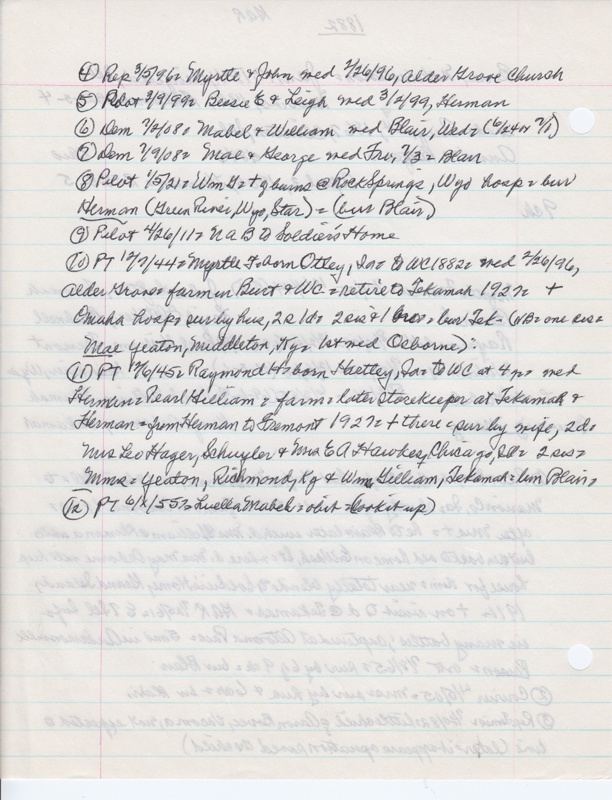 ④ Rep 3/5/96= Myrtle & John med 2/26/96, Alder Grove Church
⑤ Pilot 3/9/99= Bessie E & Leigh med 3/2/99, Herman
⑥ Dem 7/2/08= Mabel & William med Blair, Wed= (6/24 or 7/1)
⑦ Dem 7/9/08= Mae & George med Fri, 7/3= Blair
⑧ Pilot 1/5/21= Wm G= + g burns @ Rock Springs, Wyo hosp= bur
Herman (Green River, Wyo, Star) = (bur Blair)
⑨ Pilot 4/26/11= N A B to Soldier's Home
⑩ PT 12/7/44= Myrtle F= born Otley, Ia= to WC 1882= med 2/26/96,
Alder Grove= farm in Burt & WC= retire to Tekamah 1927= +
Omaha hosp= sur by hus, 2s 1d= 2 sis & 1 bro= bur Tek= (NB= one sis=
Mae Yeaton, Middleton, Ky= 1st med Osborne):
⑪ PT 12/6/45= Raymond H= born Hartley, Ia= to WC at 4 yr= med
Herman= Pearl Gilliam= farm= later storekeeper at Tekamah &
Herman= from Herman to Fremont 1927= + there= sur by wife, 2d=
Mrs Leo Hager, Schuyler & Mrs E A Hawkey, Chicago, Ill= 2 sis=
Mmes= Yeaton, Richmond, Ky & Wm Gilliam, Tekamah= bur Blair=
⑫ PT 6/ /55= Luella Mabel= obit= (look it up)